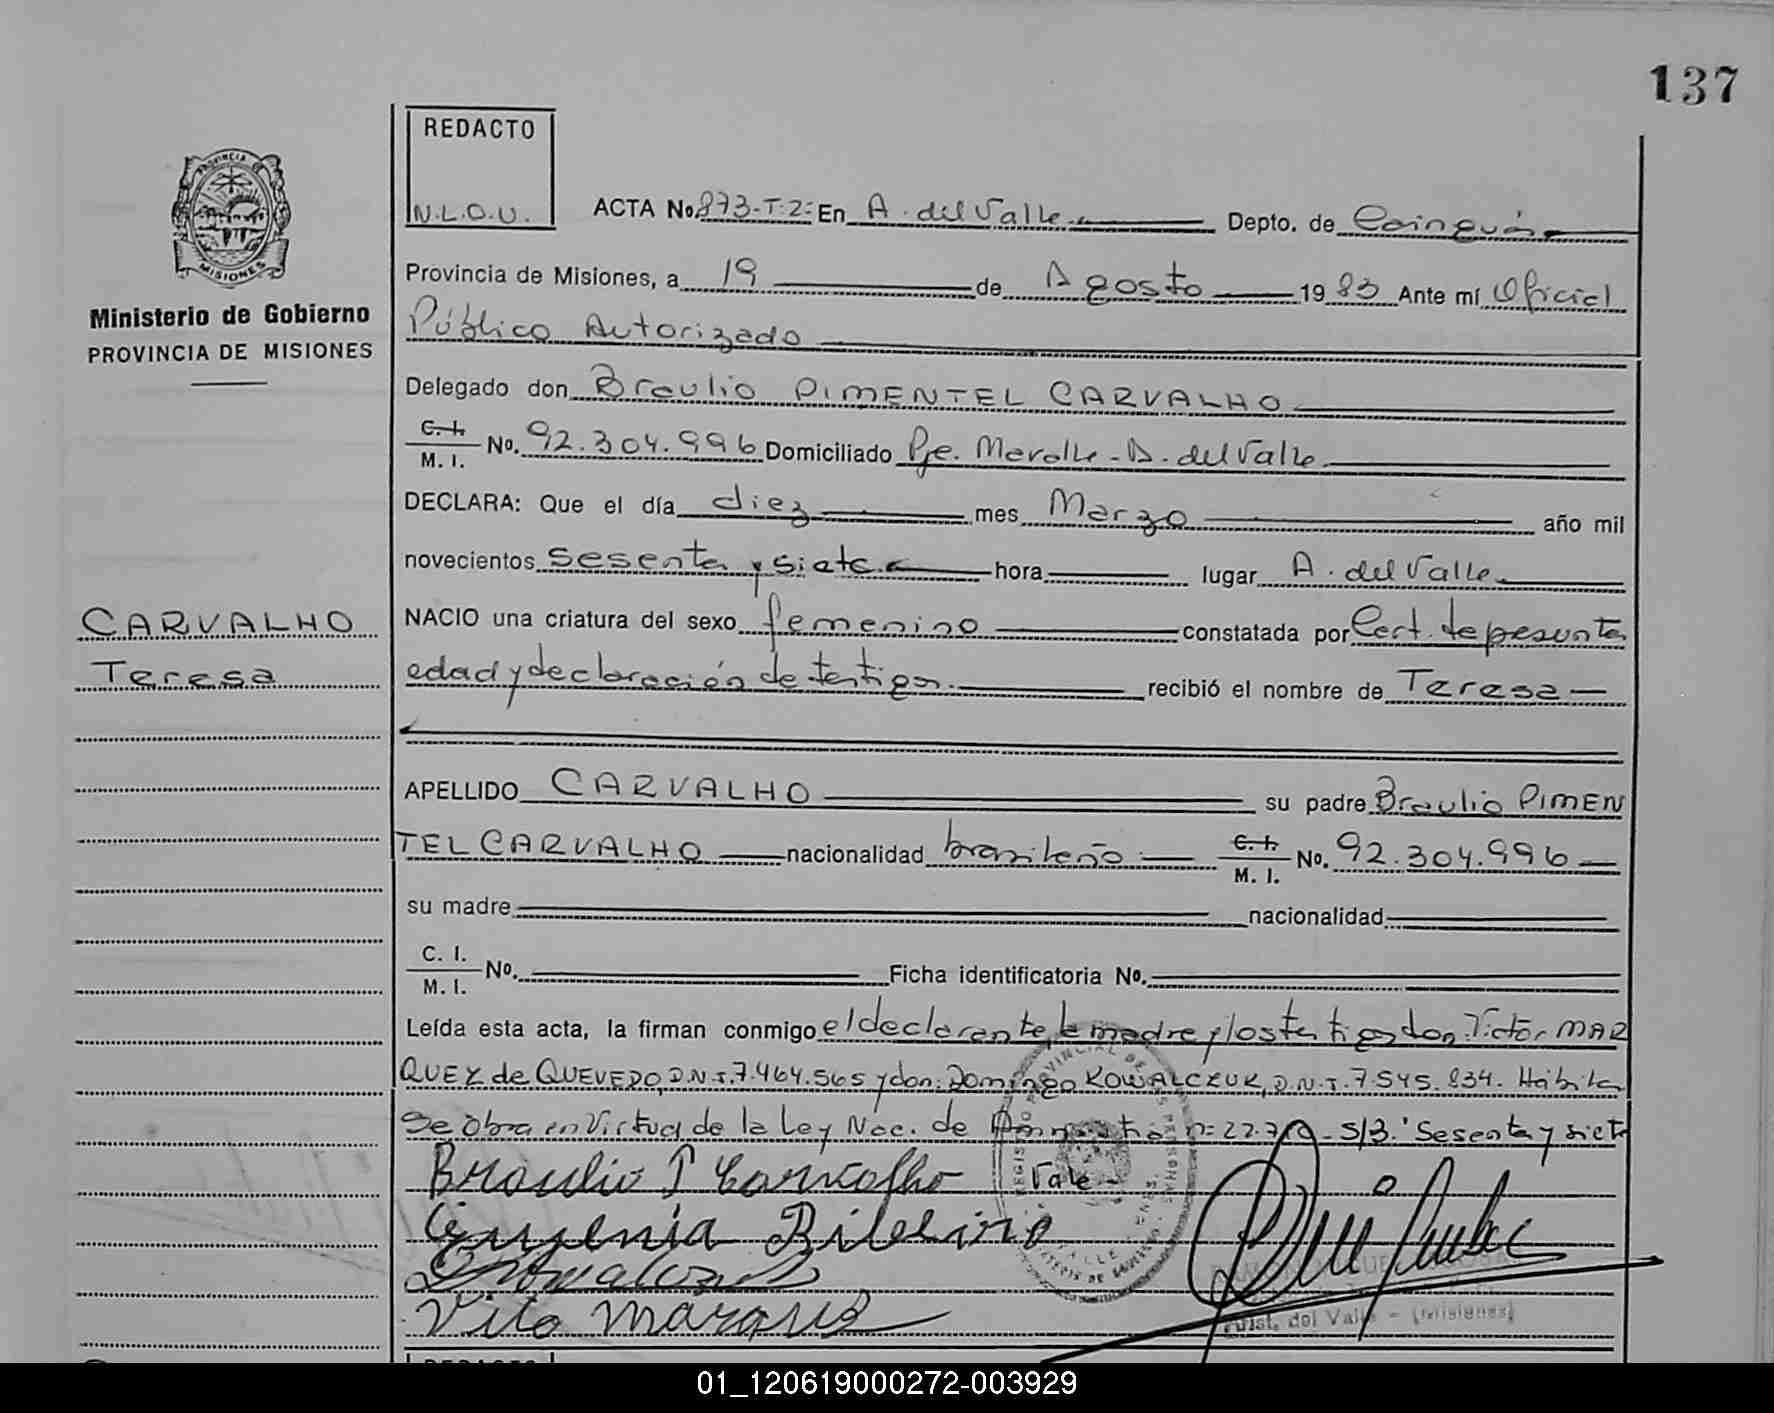 137
REDACTO
N.L.O.U.
ACTA No. 873-T:2: En A. del Valle Depto. de Cainguás
PROVINCIA DE
MISIONES
Ministerio de Gobierno
PROVINCIA DE MISIONES
Provincia de Misiones, a 19 de Agosto 1983 Ante mí Oficial
Público Autorizado
Delegado don Braulio PIMENTEL CARVALHO
C. I.
M. I. No. 92.304.996 Domiciliado Pje. Maralle - A. del Valle
DECLARA: Que el día diez mes Marzo año mil
novecientos sesenta y siete hora lugar A. del Valle
CARVALHO
Teresa
NACIO una criatura del sexo femenino constatada por Cert. de pesunta
edad y declaración de testigos. recibió el nombre de Teresa
APELLIDO CARVALHO su padre Braulio PIMEN
TEL CARVALHO nacionalidad brasileño C. I.
M. I. No. 92.304.996
su madre nacionalidad
C. I.
M. I. No. Ficha identificatoria No.
Leída esta acta, la firman conmigo el declarante la madre y los testigos don: Victor MAR
QUEZ de QUEVEDO, D.N.I. 7.464.565 y don: Domingo KOWALCZUK, D.N.I. 7.545.834. Hábita
Se obra en Virtud de la Ley Nac. de n= S/B. Sesenta y siete
Vale
Braulio P Carvalho
Eugenia Ribeiro
Vito Marques
Arist. del Valle - (Misiones)
01_120619000272-003929